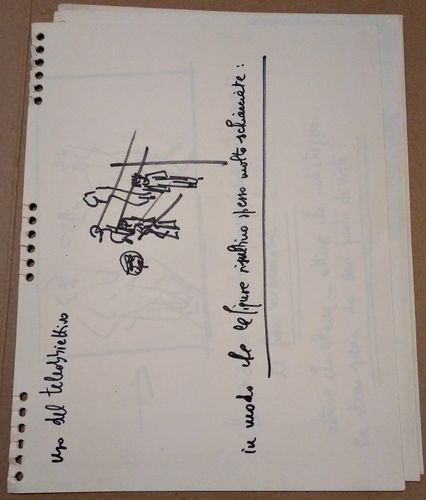 uso del teleobbiettivo
in modo che le figure risultino spesso molto schiacciate: